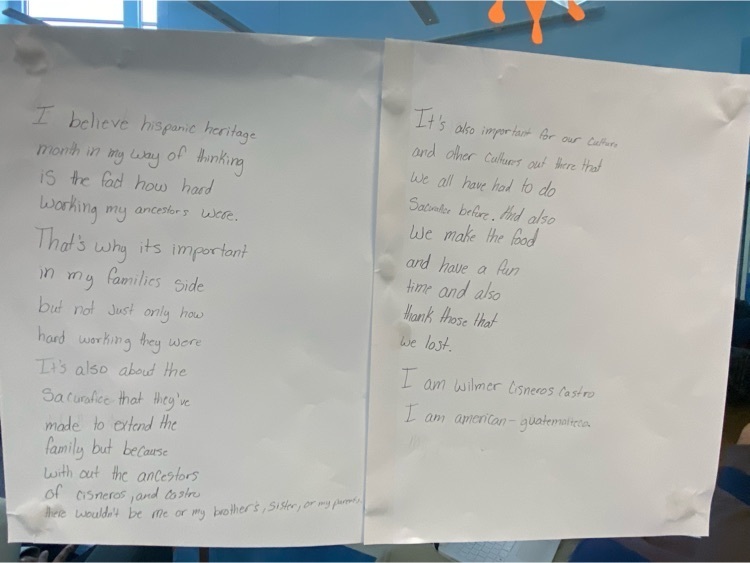 I believe hispanic heritage
month in my way of thinking
is the fact how hard
working my ancestors were.
That's why its important
in my families side
but not just only how
hard working they were
It's also about the
Sacurafice that they've
made to extend the
family but because
with out the ancestors
of cisneros, and castro
there wouldn't be me or my brother's, sister, or my parents.
It's also important for our culture
and other cultures out there that
we all have had to do
before. And also
we make the food
and have a fun
time and also
thank those that
we lost.
I am Wilmer Cisneros Castro
I am american-guatemalteca